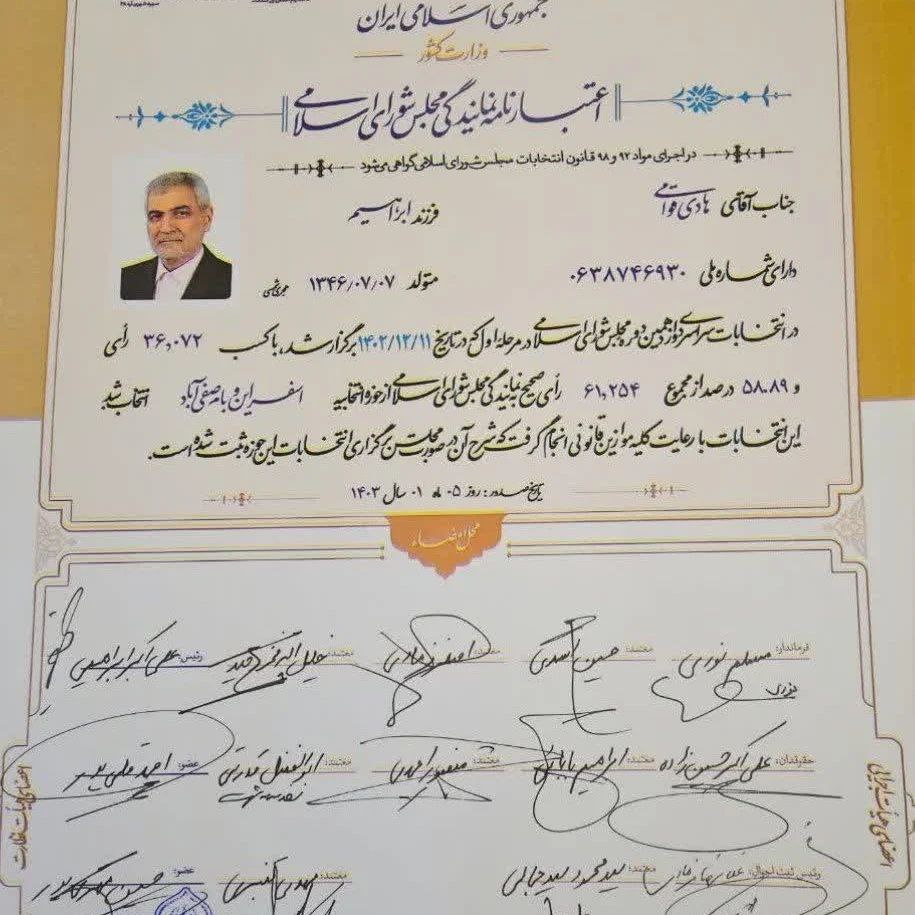 جمهوری اسلامی ایران
وزارت کشور
اعتبارنامه نمایندگی مجلس شورای اسلامی
در اجرای مواد ۹۲ و ۹۸ قانون انتخابات مجلس شورای اسلامی گواهی می‌شود
جناب آقای هادی قوامی فرزند ابراهیم
دارای شماره ملی ۰۶۳۸۷۴۶۹۳۰ متولد ۱۳۴۶/۰۷/۰۷ هجری شمسی
در انتخابات سراسری دوازدهمین دوره مجلس شورای اسلامی در مرحله اول که در تاریخ ۱۴۰۲/۱۲/۱۱ برگزار شد، با کسب ۳۶,۰۷۲ رأی
و ۵۸.۸۹ درصد از مجموع ۶۱,۲۵۴ رأی صحیح به نمایندگی مجلس شورای اسلامی از حوزه انتخابیه اسفراین و بام و صفی آباد انتخاب شد.
این انتخابات با رعایت کلیه موازین قانونی انجام گرفت که شرح آن در صورتجلسه برگزاری انتخابات این حوزه ثبت شده است.
تاریخ صدور: روز ۰۵ ماه ۰۱ سال ۱۴۰۳
محل امضاء
فرماندار: مسلم نوری معتمد: حسین اسدی معتمد: معتمد: خلیل اله رئیس: علی اکبر ابراهیمی
نوری
حقوقدان: علی اکبر حسین زاده معتمد: ابراهیم معتمد: منصور معتمد: ابوالفضل قدرتی عضو: احمد
رئیس ثبت احوال: معتمد: سید محمود سید جبالی معتمد: مهدی عضو: حسین
اعضای هیأت اجرایی
اعضای هیأت نظارت